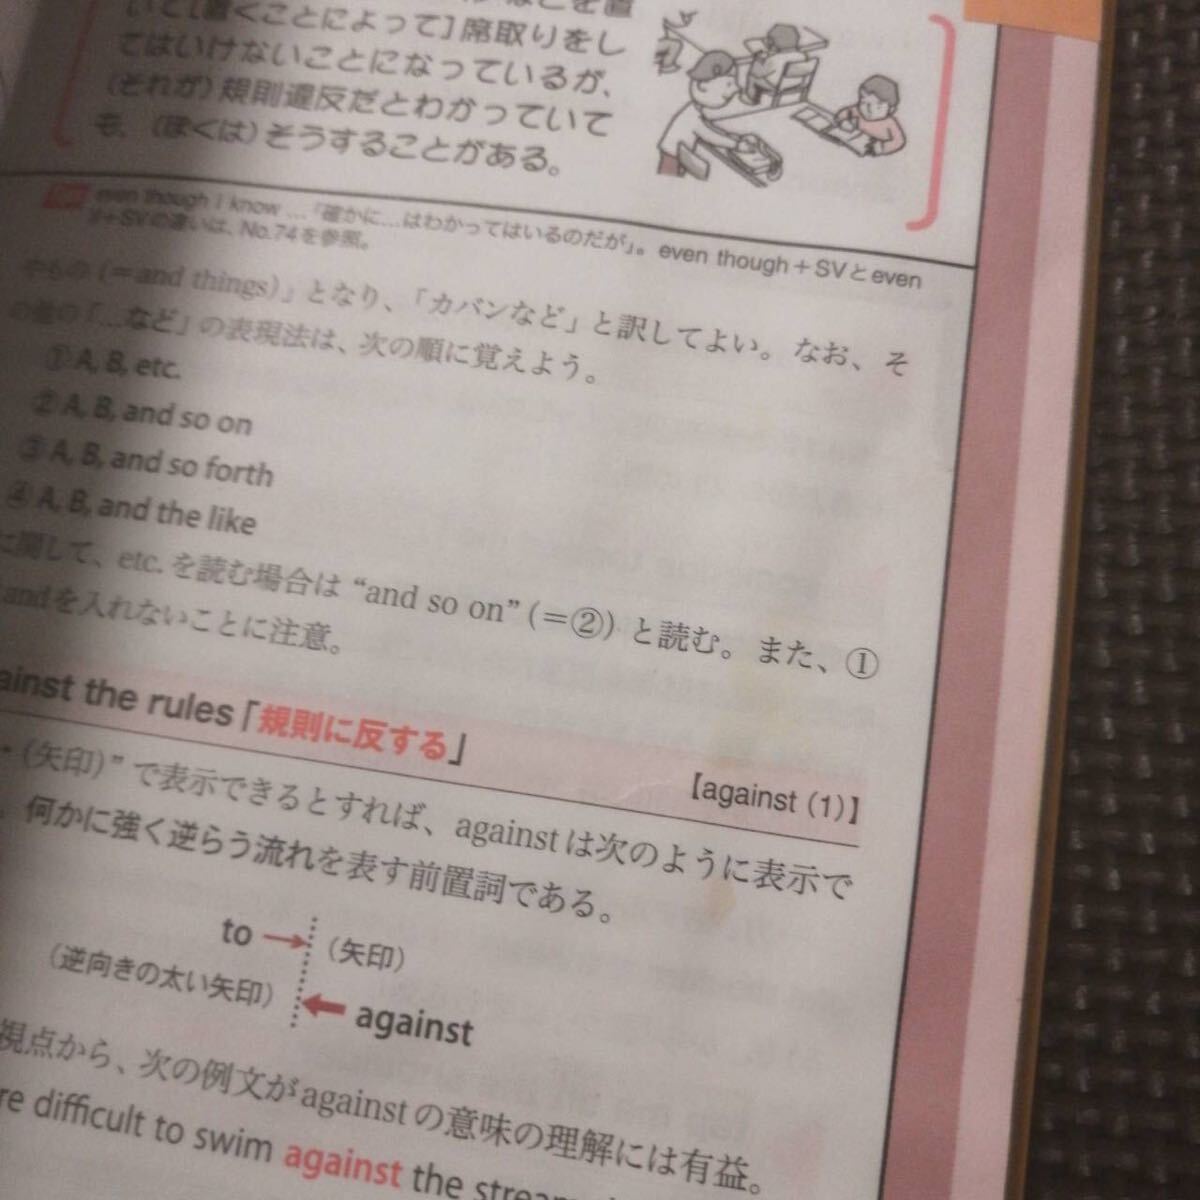 いと[置くことによって]席取りをし
てはいけないことになっているが、
(それが)規則違反だとわかっていて
も、(ぼくは)そうすることがある。
even though I know ...「確かに...はわかってはいるのだが」。even though+SVとeven
if+SVの違いは、No.74を参照。
やもの(=and things)」となり、「カバンなど」と訳してよい。なお、そ
の他の「...など」の表現法は、次の順に覚えよう。
① A, B, etc.
② A, B, and so on
③ A, B, and so forth
④ A, B, and the like
に関して、etc. を読む場合は “and so on” (=②) と読む。また、①
andを入れないことに注意。
ainst the rules「規則に反する」
【against (1)】
(矢印)” で表示できるとすれば、againstは次のように表示で
、何かに強く逆らう流れを表す前置詞である。
to → (矢印)
(逆向きの太い矢印) ← against
視点から、次の例文がagainstの意味の理解には有益。
re difficult to swim against the stream